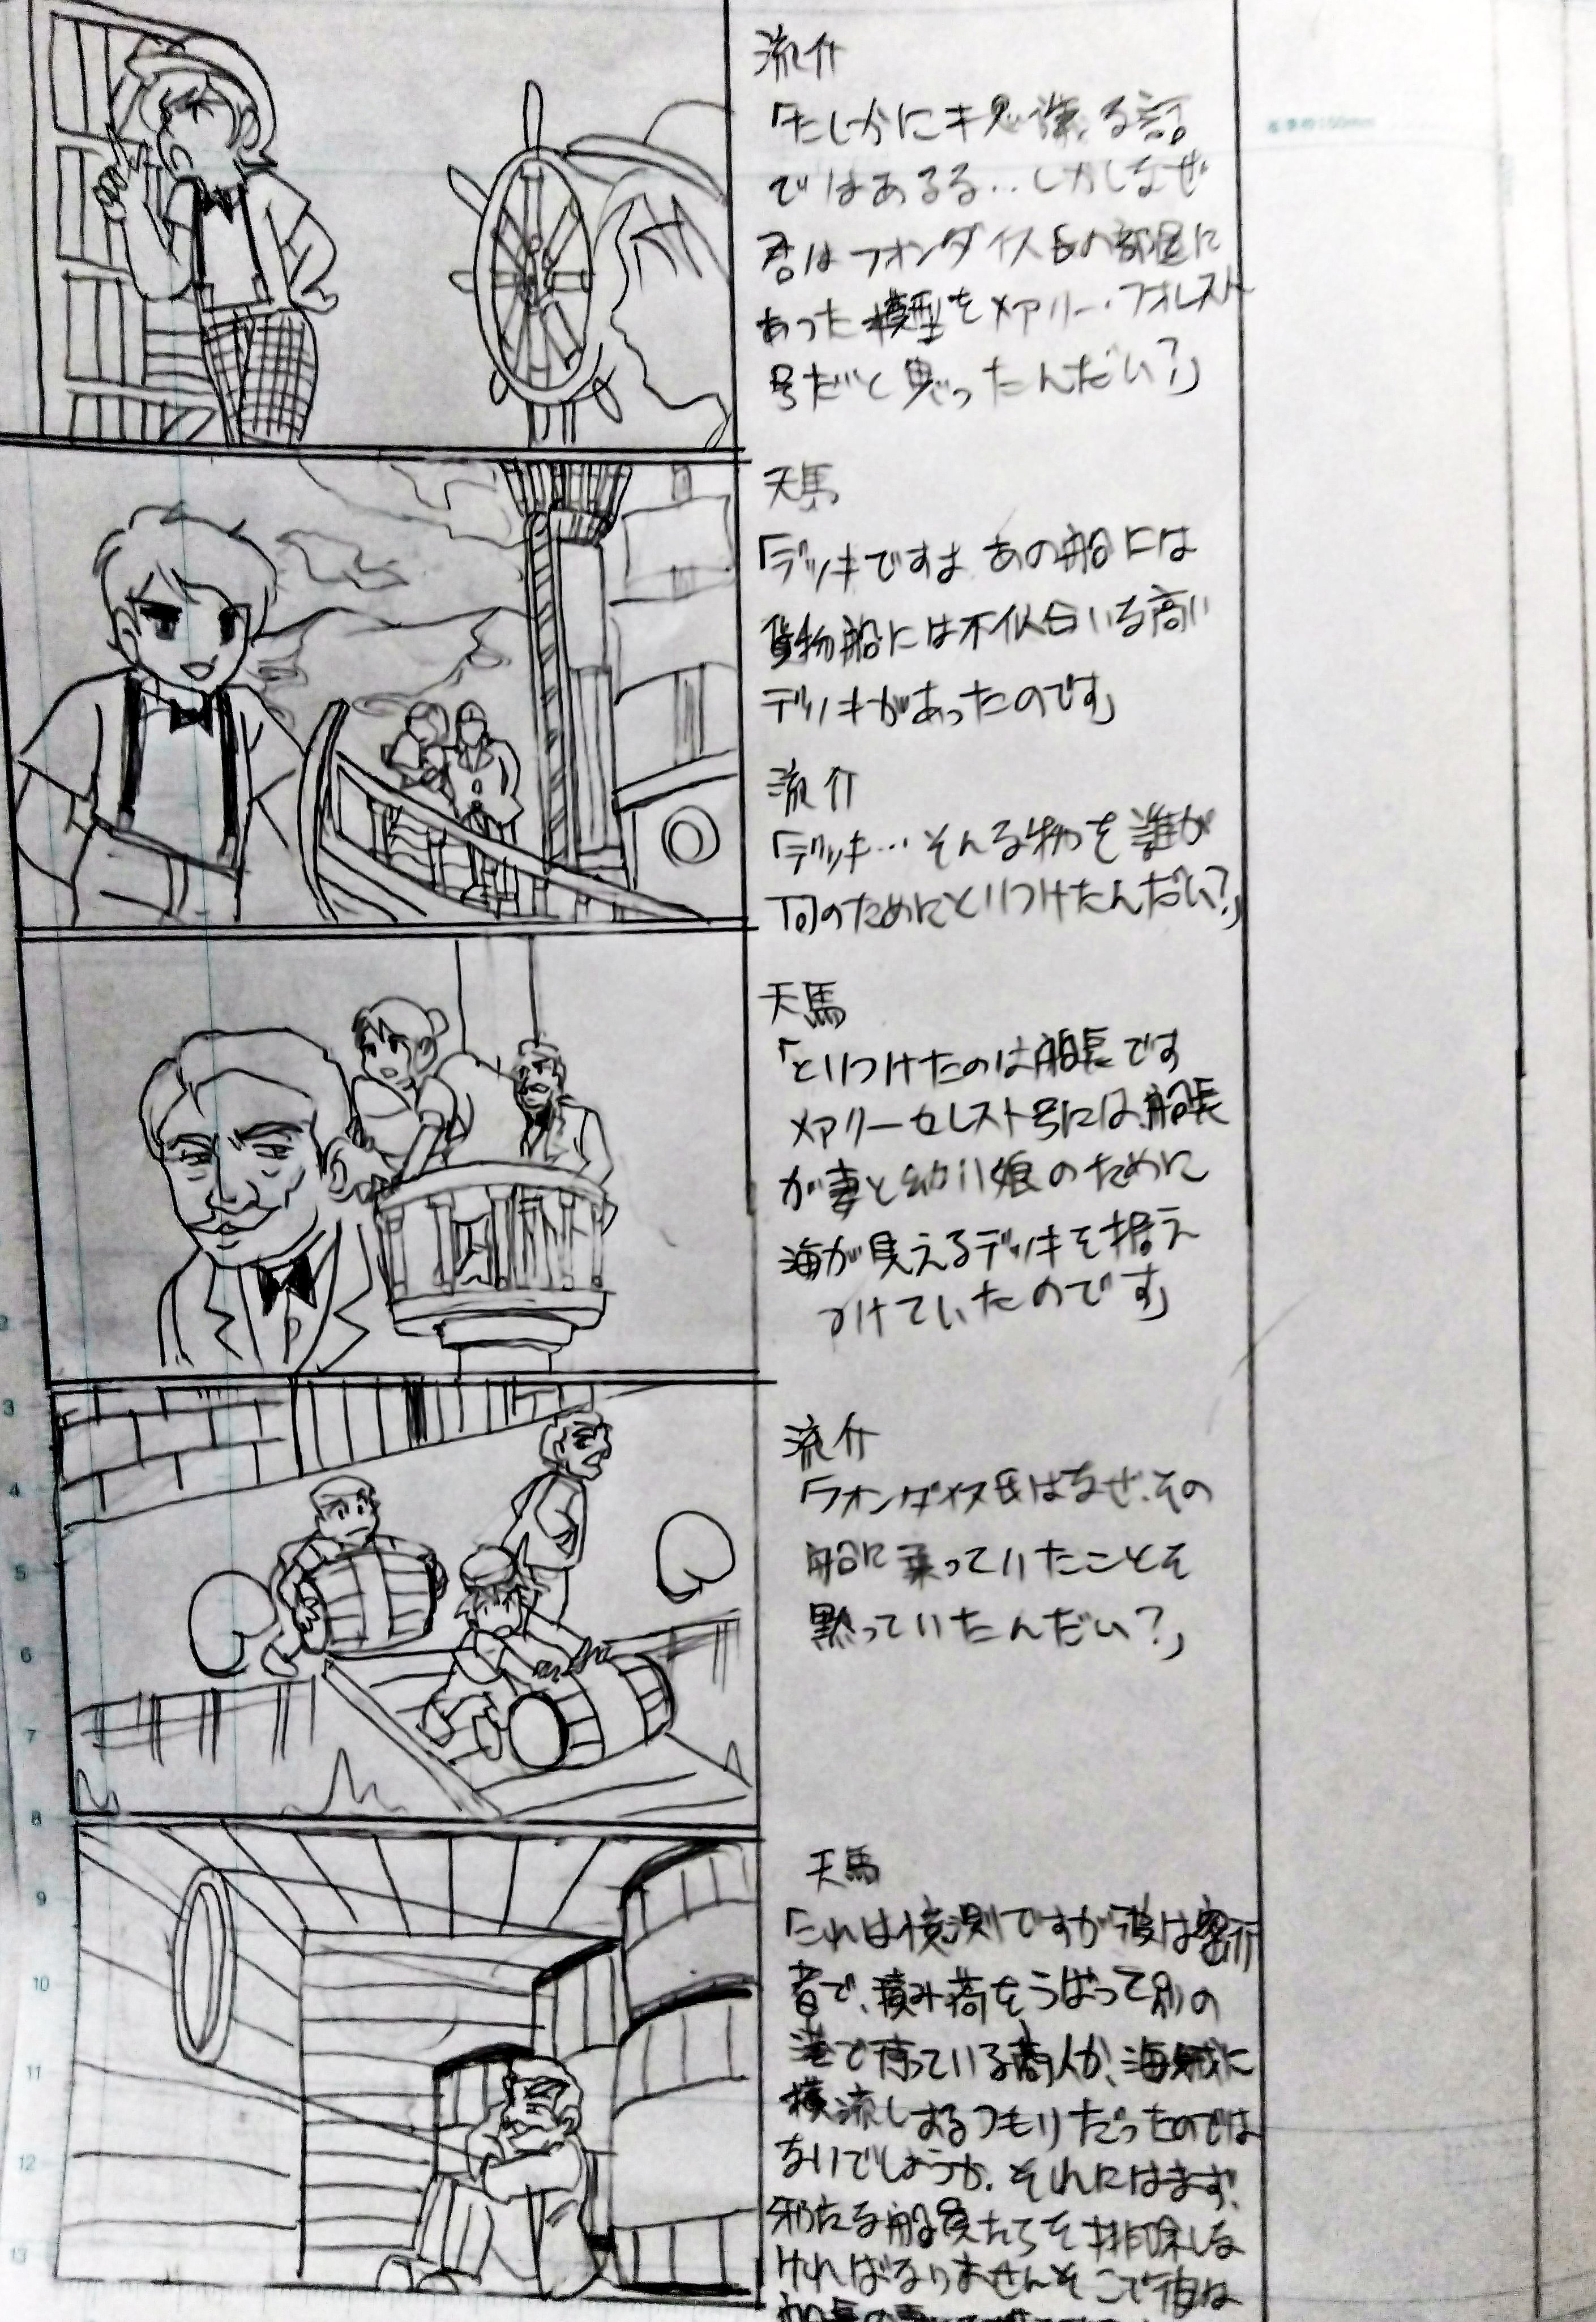 流介
「たしかにキ思儀な話
ではあるな‥しかしなぜ
君はフォンダイス氏の部屋に
あった模型をメアリー・フォレスト
号だと思ったんだい？」
天馬
「デッキですよ あの船には
貨物船には不似合いな高い
デッキがあったのです」
流介
「デッキ…そんな物を誰が
何のためにとりつけたんだい？」
天馬
「とりつけたのは船長です
メアリーセレスト号には、船長
が妻と幼い娘のために
海が見えるデッキを据え
つけていたのです」
流介
「フォンダイス氏はなぜ、その
船に乗っていたことを
黙っていたんだい？」
天馬
「これは憶測ですが彼は密航
者で、積み荷をうばって別の
港で待っている商人か、海賊に
横流しするつもりだったのでは
ないでしょうか。それにはまず、
邪たな船員たちを排除しな
ければなりませんそこで彼は
2
3
4
5
6
7
8
9
10
11
12
13